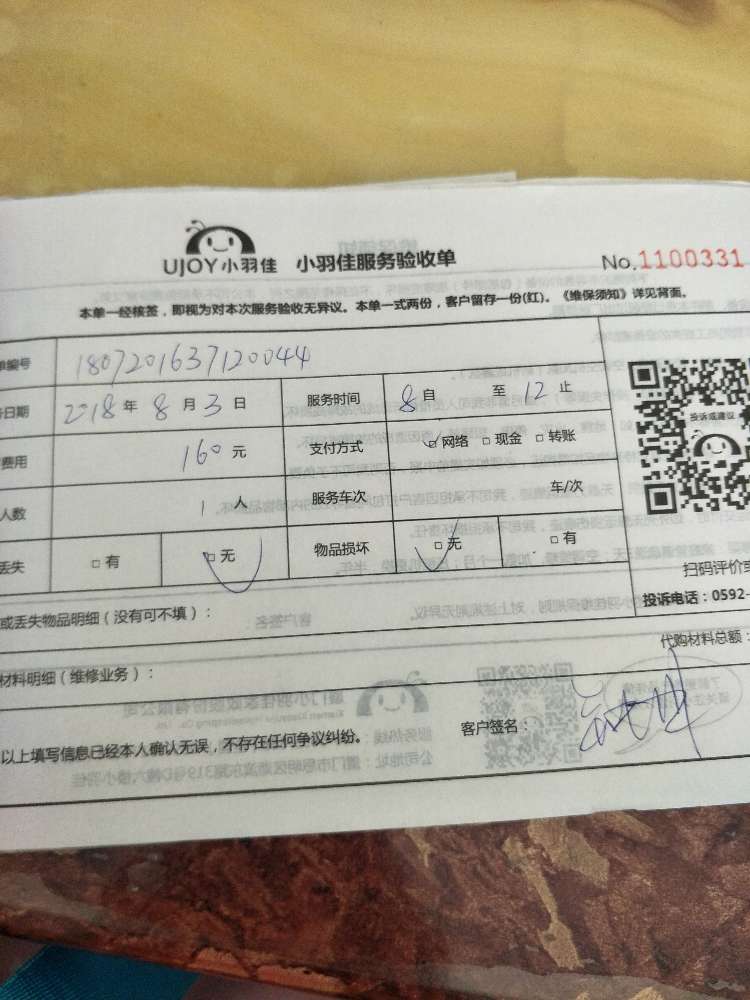 UJOY小羽佳 小羽佳服务验收单 No.1100331
本单一经核签，即视为对本次服务验收无异议。本单一式两份，客户留存一份(红)。《维保须知》详见背面。
单编号 1807201637120044
日期 2018年8月3日 服务时间 8自 至 12止
投诉或建议
费用 160元 支付方式 网络 现金 转账
人数 1人 服务车次 车/次
丢失 有 无 物品损坏 无 有
扫码评价或
或丢失物品明细（没有可不填）： 投诉电话：0592-
材料明细（维修业务）： 代购材料总额：
以上填写信息已经本人确认无误，不存在任何争议纠纷。 客户签名：